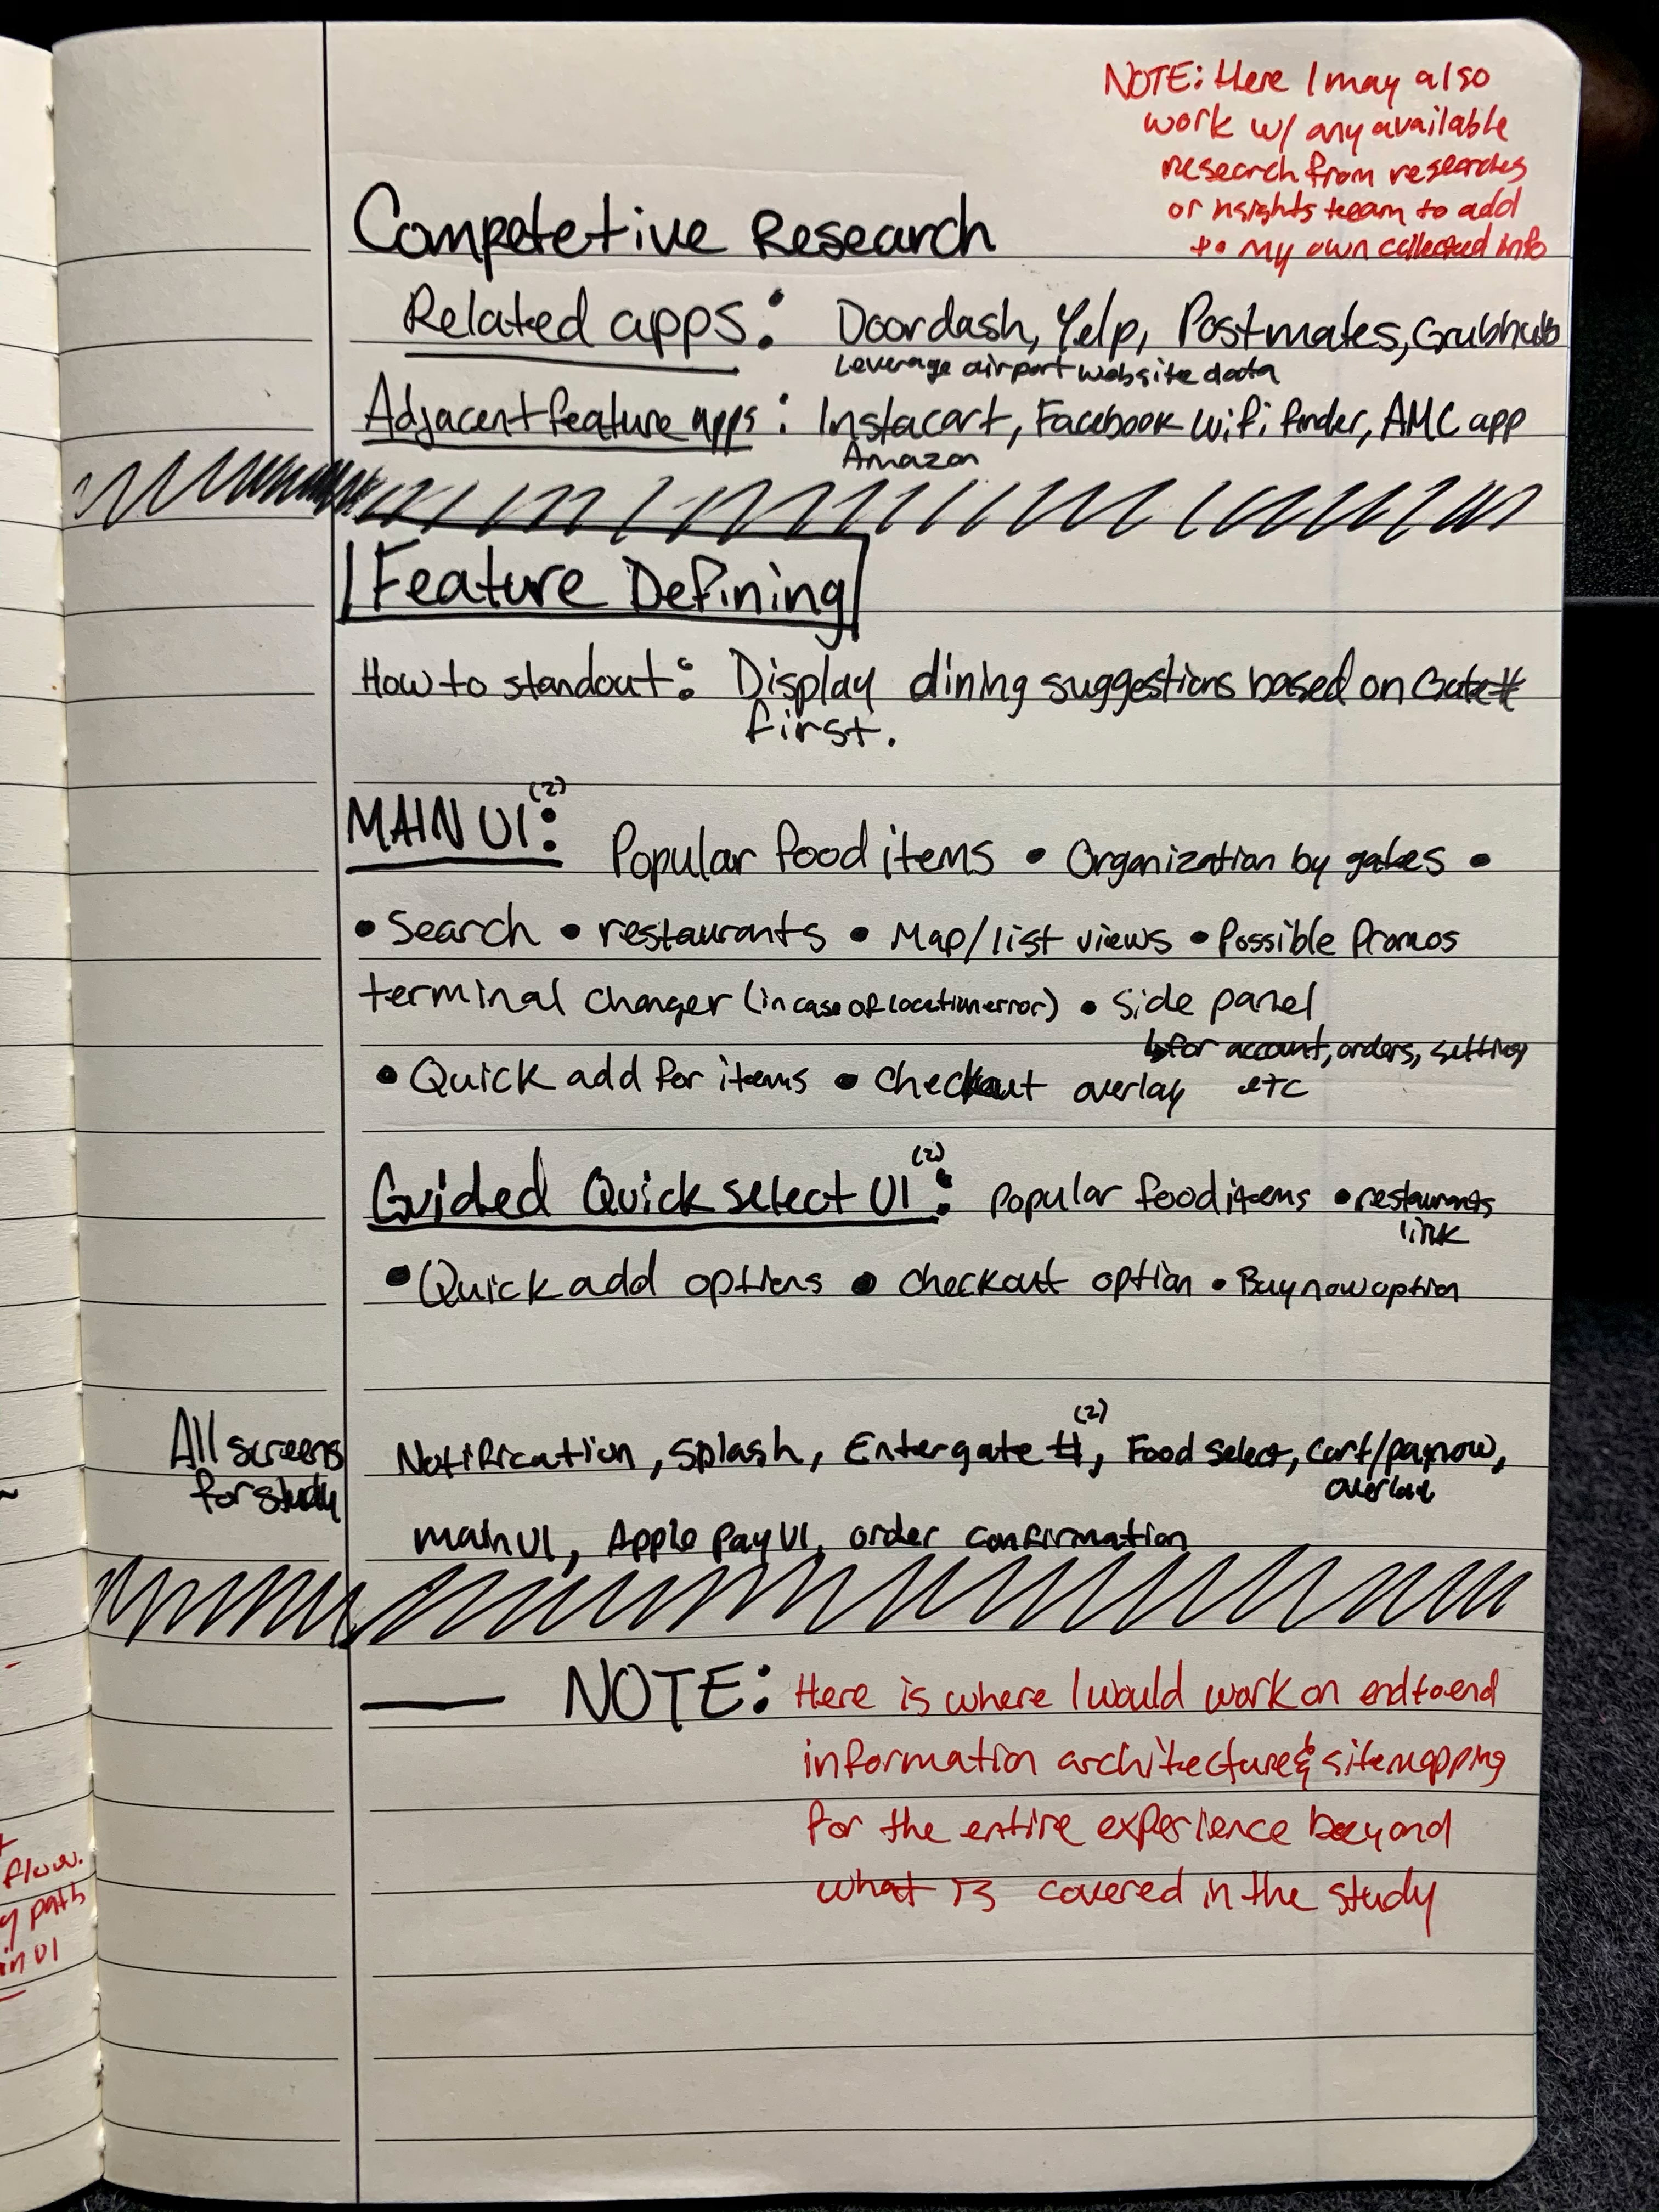 NOTE: Here I may also
work w/ any available
research from researches
or nsights team to add
to my own collected info
Competetive Research
Related apps: Doordash, Yelp, Postmates, Grubhub
Leverage airport website data
Adjacent feature apps: Instacart, Facebook wifi finder, AMC app
Amazon
Feature Defining
How to standout: Display dining suggestions based on Gate #
first.
MAIN UI(2): Popular food items • Organization by gates •
• Search • restaurants • Map/list views • Possible Promos
terminal changer (in case of location error) • Side panel
↳ for account, orders, settings
• Quick add for items • Checkout overlay etc
Guided Quick select UI(2): Popular food items • restaurants
link
• Quick add options • Checkout option • Buy now option
All screens
for study
Notification, Splash, Enter gate #(2), Food select, Cart/paynow,
overlay
main UI, Apple Pay UI, order confirmation
— NOTE: Here is where I would work on end to end
information architecture & sitemapping
for the entire experience beyond
what is covered in the study
flow.
path
UI